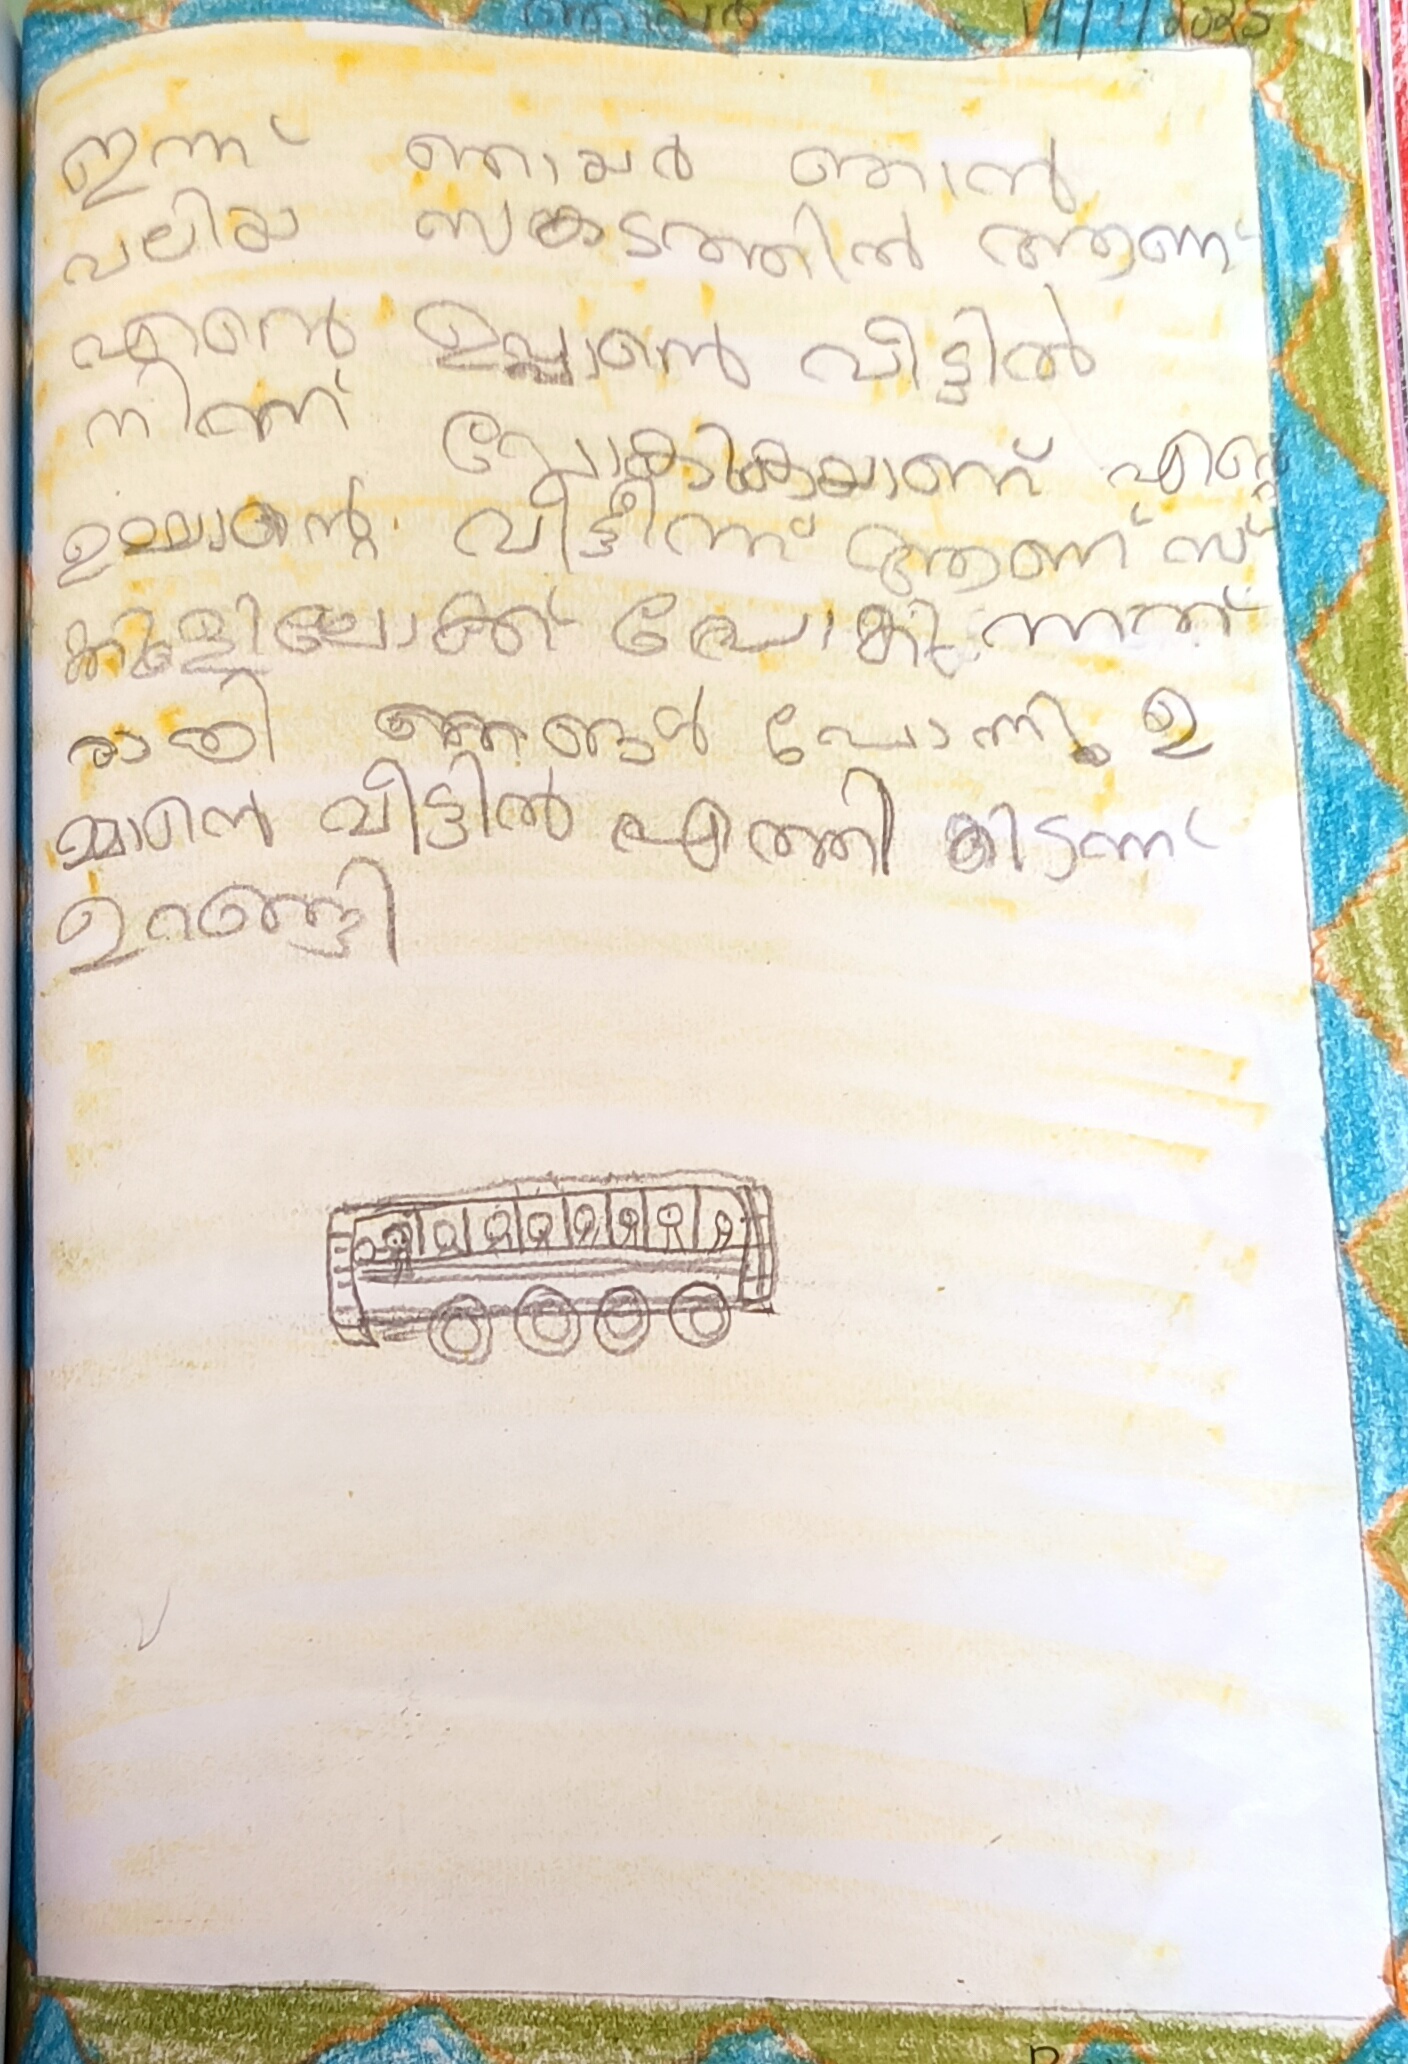 ഞായർ
ഇന്ന് ഞായർ ഞാൻ
വലിയ സങ്കടത്തിൽ ആണ്
എന്റെ ഉപ്പാന്റെ വീട്ടിൽ
നിന്ന് പോകുകയാണ് എന്റെ
ഉമ്മാന്റെ വീട്ടീന്ന് ആണ് സ്
കൂളിലോക്ക് പോകുന്നത്
രാതി ഞങ്ങൾ പോന്നു ഉ
മ്മാന്റെ വീട്ടിൽ എത്തി കിടന്ന്
ഉറങ്ങി